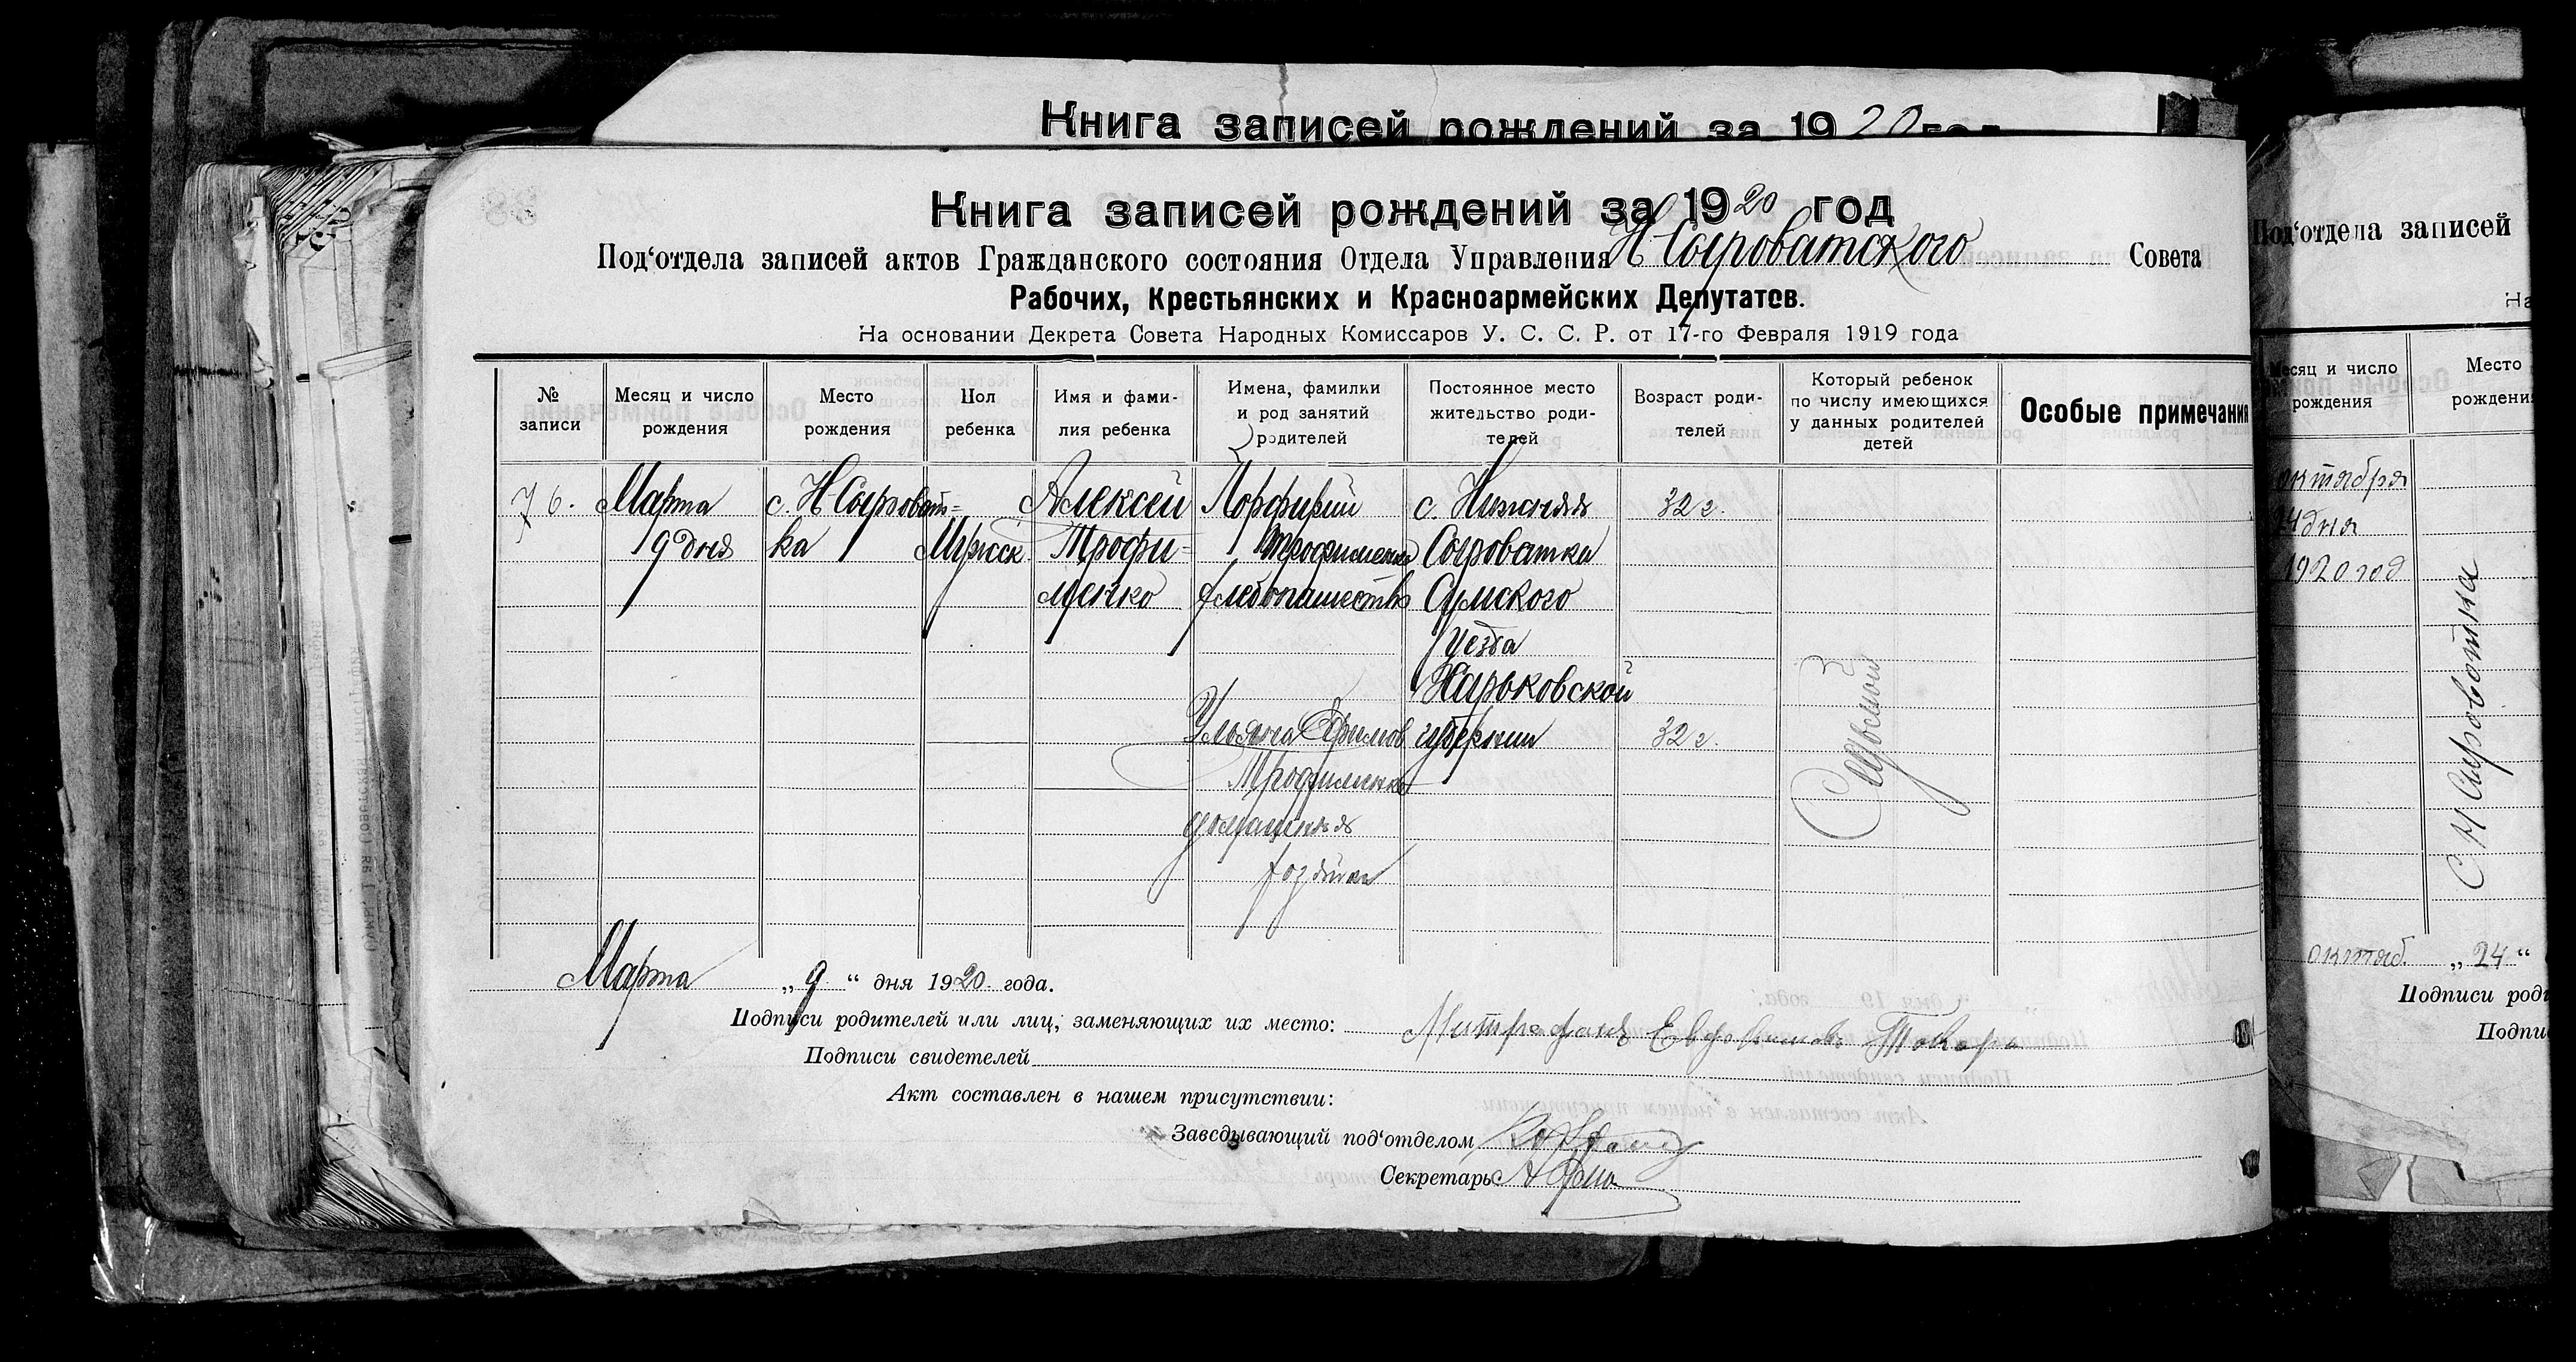 Книга записей рождений за 1920 год
Книга записей рождений за 1920 год
Под‘отдела записей актов Гражданского состояния Отдела Управления Н Сыроватского Совета
Рабочих, Крестьянских и Красноармейских Депутатов.
На основании Декрета Совета Народных Комиссаров У. С. С. Р. от 17-го Февраля 1919 года
№ записи
Месяц и число рождения
Место рождения
Пол ребенка
Имя и фами-
лия ребенка
Имена, фамилки
и род занятий
родителей
Постоянное место
жительство роди-
телей
Возраст роди-
телей
Который ребенок
по числу имеющихся
у данных родителей
детей
Особые примечания
76.
Марта
9 дня
с. Н Сыроват=
ка
Мужск
Алексей
Трофи=
менко
Порфирий
Трофименко
хлебопашество
Ульяна Ефимов
Трофименко
домашняя
хозяйка
с. Нижняя
Сыроватка
Сумского
уезда
Харьковской
губернии
32 г.
32 г.
Седьмой
Марта „9“ дня 1920 года.
Подписи родителей или лиц, заменяющих их место: Митрофанъ Евфимовъ Токарь
Подписи свидетелей
Акт составлен в нашем присутствии:
Заведывающий под‘отделом
Секретарь
Под‘отдела записей
На
Месяц и число
рождения
Место
рождения
октября
24 дня
1920 год
С Н Сыроватки
октяб. „24“
Подписи роди
Подпи